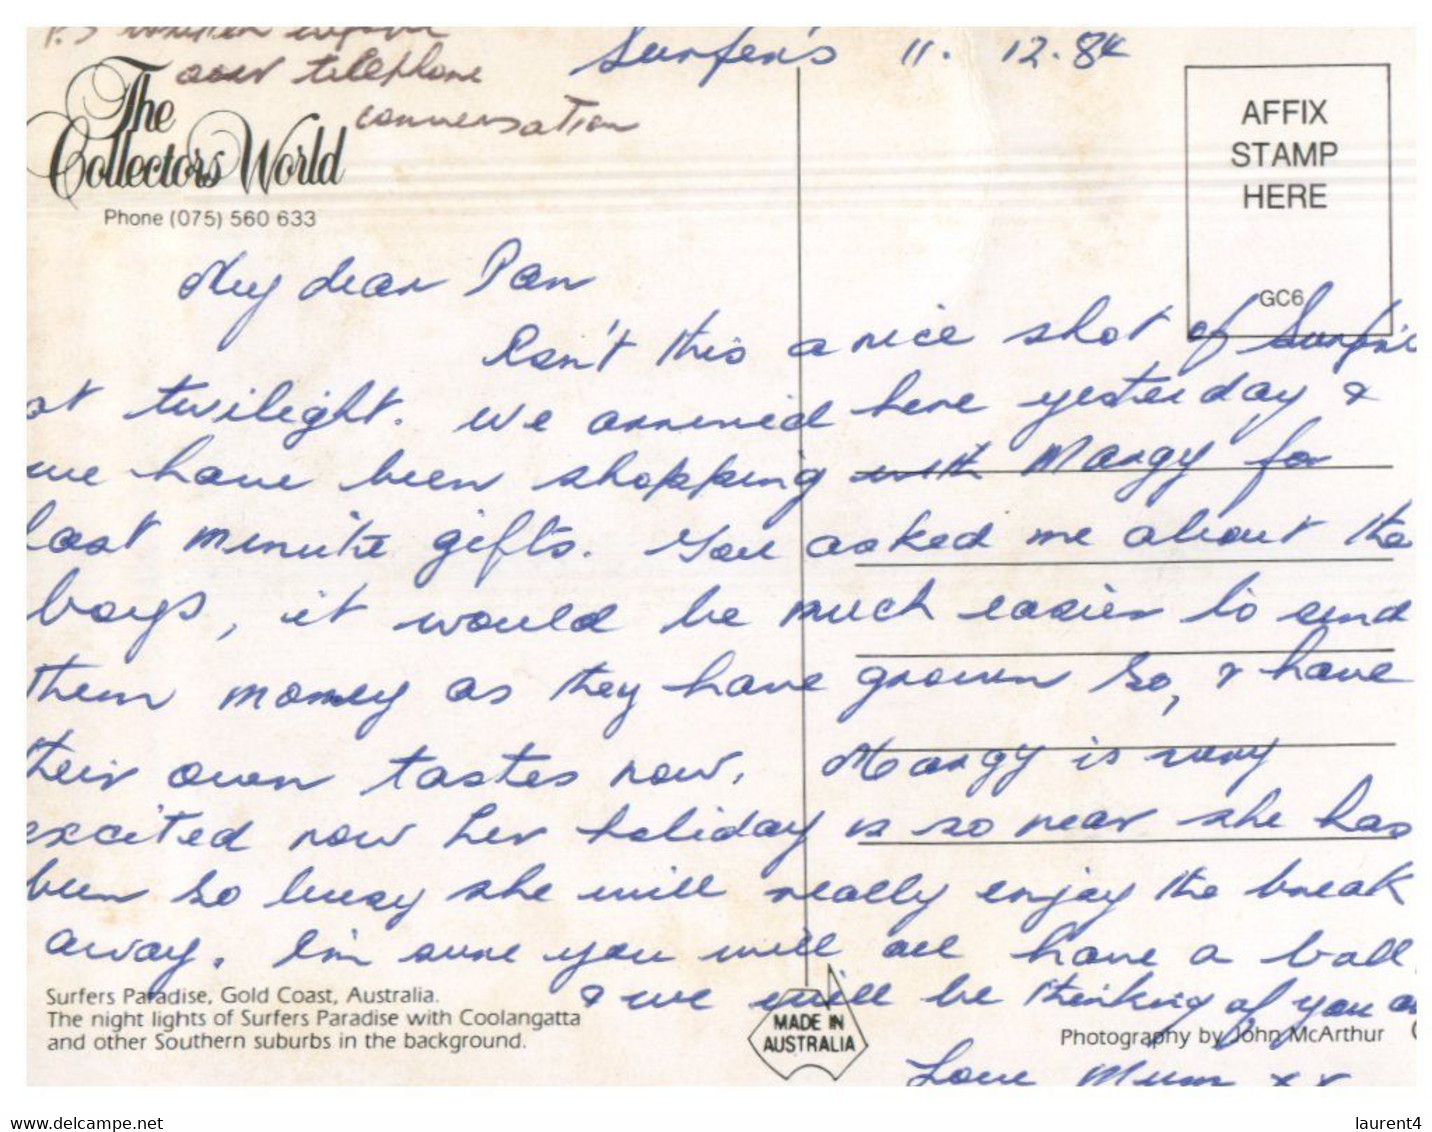 P.S written before
our telephone
conversation
Surfers 11. 12. 84
The
Collectors World
Phone (075) 560 633
AFFIX
STAMP
HERE
GC6
My dear Pam
Isn't this a nice shot of Surfers
at twilight. We arrived here yesterday &
we have been shopping with Margy for
last minute gifts. You asked me about the
boys, it would be much easier to send
them money as they have grown so, & have
their own tastes now. Margy is very
excited now her holiday is so near she has
been so busy she will really enjoy the break
away. I'm sure you will all have a ball
& we will be thinking of you
Love Mum xx
Surfers Paradise, Gold Coast, Australia.
The night lights of Surfers Paradise with Coolangatta
and other Southern suburbs in the background.
MADE IN
AUSTRALIA
Photography by John McArthur
delcampe.net
laurent4